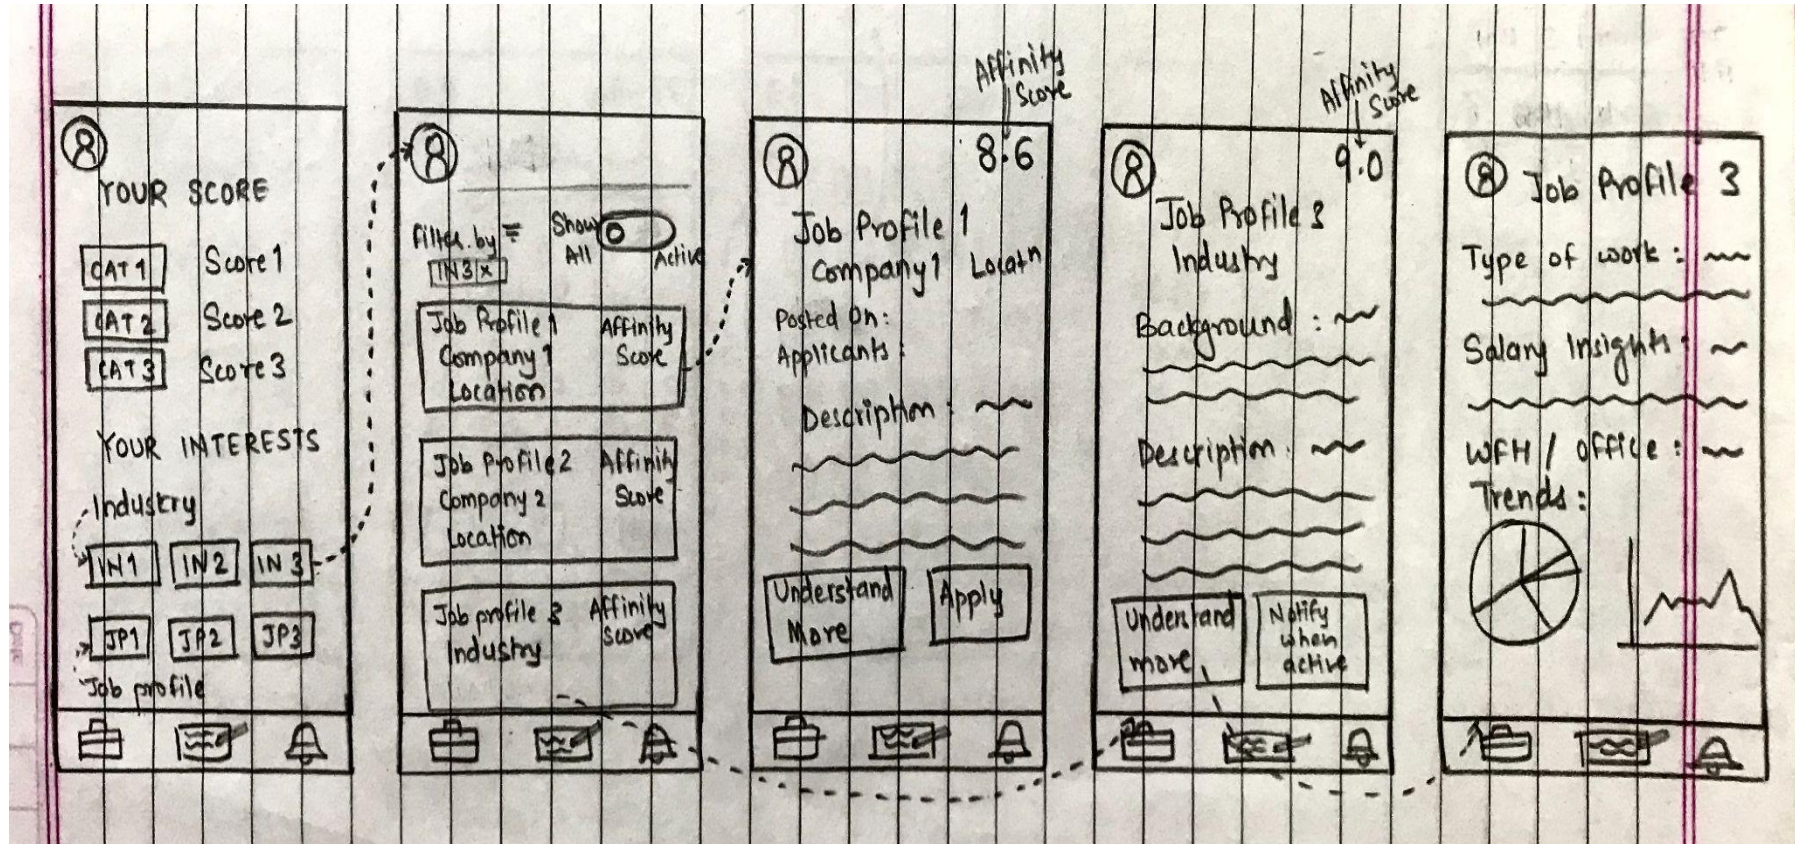 YOUR SCORE
CAT 1 Score 1
CAT 2 Score 2
CAT 3 Score 3
YOUR INTERESTS
Industry
IN1 IN2 IN3
JP1 JP2 JP3
Job profile
Filter by
IN3 x
Show All
Active
Job Profile 1 Affinity
Company 1 Score
Location
Job Profile 2 Affinity
Company 2 Score
Location
Job profile 3 Affinity
Industry Score
Affinity
Score
8.6
Job Profile 1
Company 1 Locatn
Posted On:
Applicants:
Description:
Understand
More
Apply
Affinity
Score
9.0
Job Profile 3
Industry
Background:
Description:
Understand
more
Notify
when
active
Job Profile 3
Type of work:
Salary Insights:
WFH / Office:
Trends: